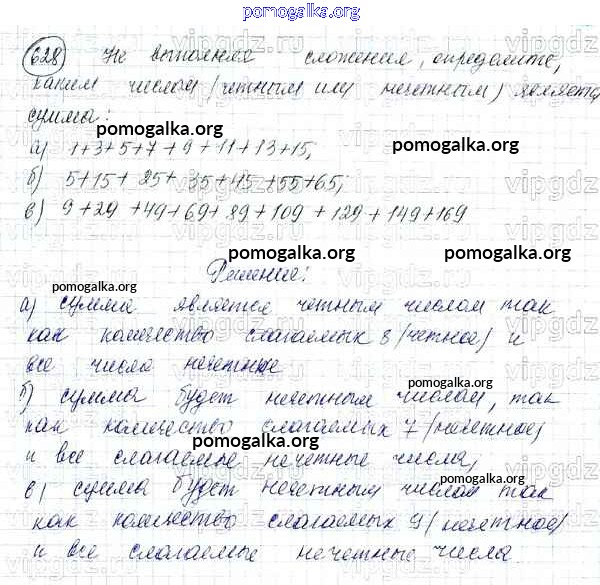 pomogalka.org
628 Не выполняя сложения, определите,
каким числом (четным или нечетным) является
сумма:
pomogalka.org
а) 1+3+5+7+9+11+13+15;
pomogalka.org
б) 5+15+25+35+45+55+65;
в) 9+29+49+69+89+109+129+149+169
pomogalka.org pomogalka.org
Решение:
pomogalka.org
а) сумма является четным числом так
как количество слагаемых 8 (четное) и
pomogalka.org
все числа нечетные
pomogalka.org
б) сумма будет нечетным числом, так
как количество слагаемых 7 (нечетное)
pomogalka.org
и все слагаемые нечетные числа;
pomogalka.org
в) сумма будет нечетным числом так
как количество слагаемых 9 (нечетное)
и все слагаемые нечетные числа